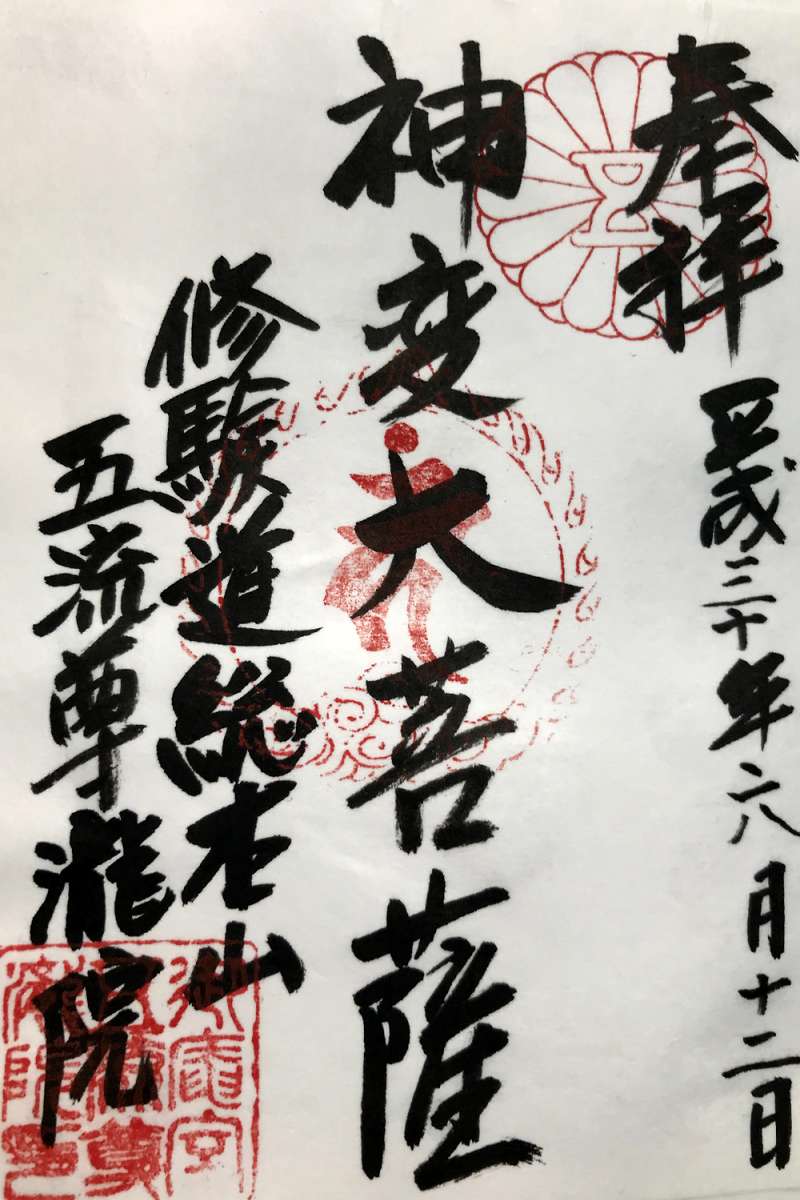 奉拝
平成三十年六月十二日
神変大菩薩
修験道総本山
五流尊瀧院